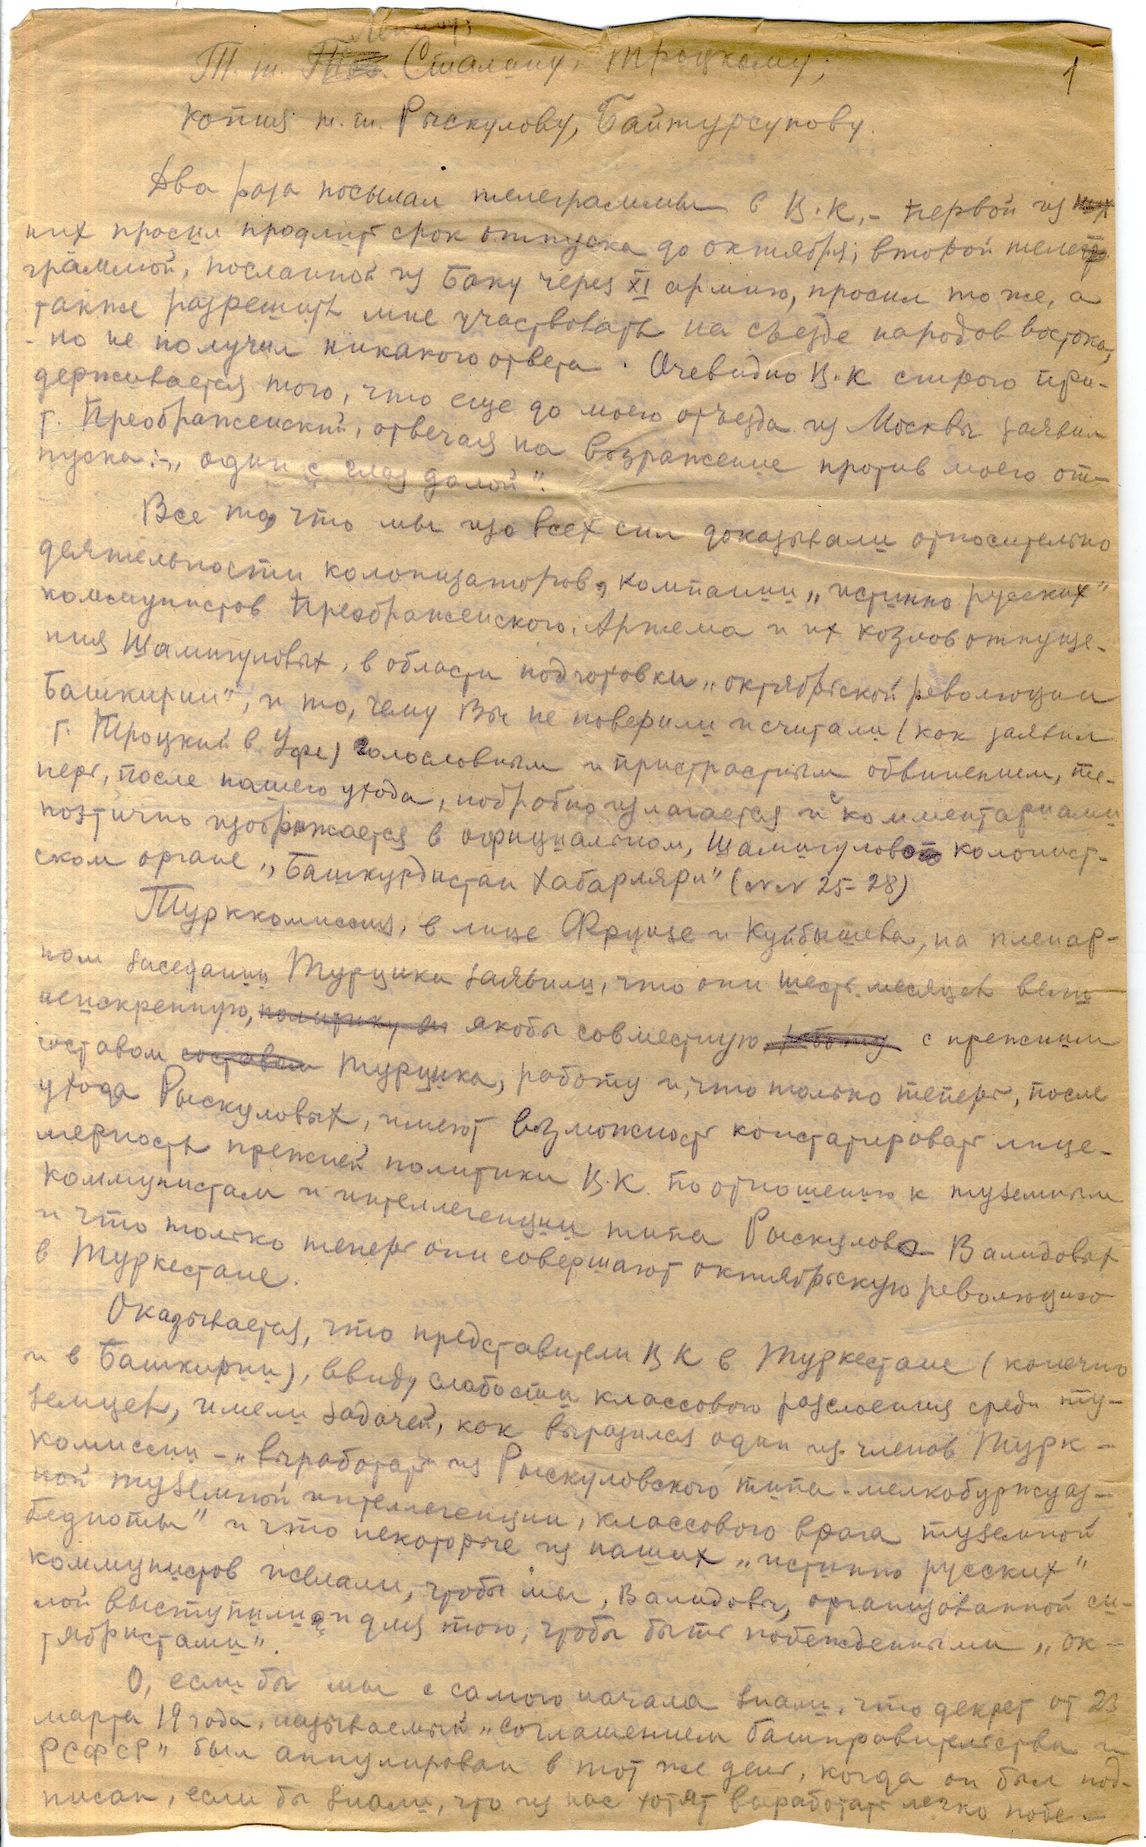 Ленину,
Т.т. Сталину, Троцкому; 1
копия т.т. Рыскулову, Байтурсунову.
Два раза посылал телеграммы в Ц.К.,- первой из них
них просил продлить срок отпуска до октября; второй телег
граммой, посланной из Баку через XI армию, просил то же, а
также разрешить мне участвовать на съезде народов востока,
- но не получил никакого ответа. Очевидно Ц.К строго при-
держивается того, что еще до моего отъезда из Москвы заявил
т. Преображенский, отвечая на возражение против моего от-
пуска:-„ один с глаз долой".
Все то, что мы изо всех сил доказывали относительно
деятельности колонизаторов, компании „истинно русских"
коммунистов Преображенского, Артема и их козлов отпуще-
ния Шамигуловых, в области подготовки „октябрьской революции
Башкирии", и то, чему Вы не поверили и считали (как заявил
т. Троцкий в Уфе) голословным и пристрастным обвинением, те-
перь, после нашего ухода, подробно излагается и с комментариами
поэтично изображается в официальном, Шамигулово колонист-
ском органе „Башкурдистан хабарляри" (NN 25-28)
Турккомиссия, в лице Фрунзе и Куйбышева, на пленар-
ном заседании Турцика заявили, что они шесть месяцев вели
неискреннюю, политику якобы совместную работу с прежним
составом составом Турцика, работу и, что только теперь, после
ухода Рыскуловых, имеют возможность констатировать лице-
мерность прежней политики Ц.К. по отношению к туземным
коммунистам и интеллегенции типа Рыскулова Валидовых
и что только теперь они совершают октябрьскую революцию
в Туркестане.
Оказывается, что представители Ц К в Туркестане (конечно
и в Башкирии), ввиду слабости классового разслоения среди ту-
земцев, имели задачей, как выразился один из членов Турк-
комиссии - „выработать из Рыскуловского типа - мелкобуржуаз-
ной туземной интеллегенции, классового врага туземной
бедноты" и что некоторые из наших „истинно русских"
коммунистов желали, чтобы мы, Валидовы, организованной си-
лой выступили и для того, чтобы быть побежденными „ок-
тябристами".
О, если бы мы с самого начала знали, что декрет от 23
марта 19 года, называемый „соглашением башправительства и
РСФСР" был аннулирован в тот же день, когда он был под-
писан, если бы знали, что из нас хотят выработать легко побе-